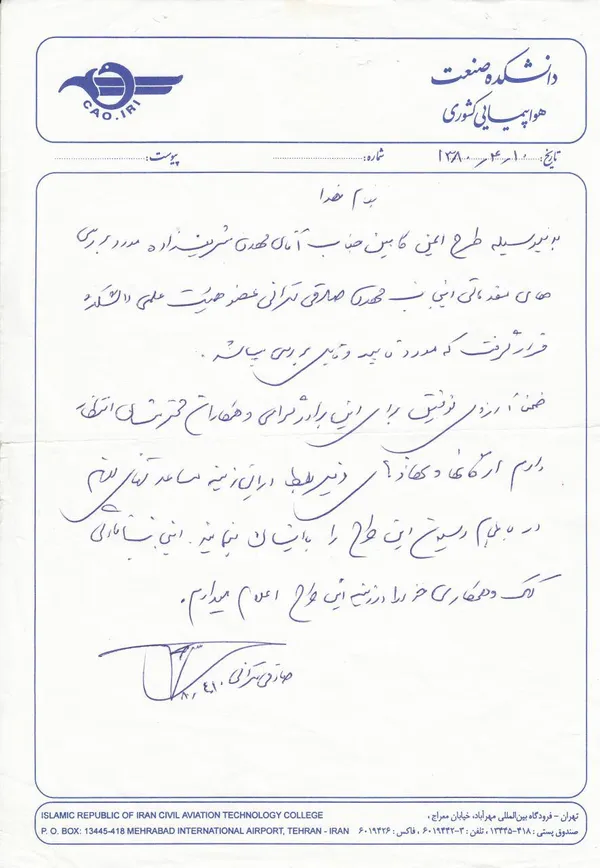 دانشکده صنعت
هواپیمایی کشوری
CAO.IRI
تاریخ: ۱۳۸۰/۴/۱۰ شماره: پیوست:
بنام خدا
بدینوسیله طرح ایمنی کابین جناب آقای مهدی شریف زاده مورد بررسی
های مقدماتی اینجانب مهدی صادقی تهرانی عضو هیئت علمی دانشکده
قرار گرفت که مورد تایید و قابل بررسی میباشد.
ضمن آرزوی توفیق برای این برادر گرامی و همکاران محترمشان انتظار
دارم ارگانها و نهادهای ذیربط در این زمینه مساعدتهای لازم
در به انجام رسیدن این طرح را با ایشان بنمایند. اینجانب آمادگی
کمک و همکاری خود را در زمینه این طرح اعلام میدارم.
صادقی تهرانی ۸۰/۴/۱۰
ISLAMIC REPUBLIC OF IRAN CIVIL AVIATION TECHNOLOGY COLLEGE
P. O. BOX: 13445-418 MEHRABAD INTERNATIONAL AIRPORT, TEHRAN - IRAN
تهران - فرودگاه بین‌المللی مهرآباد، خیابان معراج،
صندوق پستی: ۴۱۸-۱۳۴۴۵، تلفن: ۳-۶۰۱۹۴۴۲، فاکس: ۶۰۱۹۴۲۶